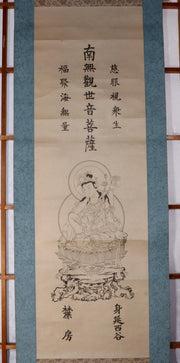 慈眼視衆生
南無觀世音菩薩
福聚海無量
身延西谷